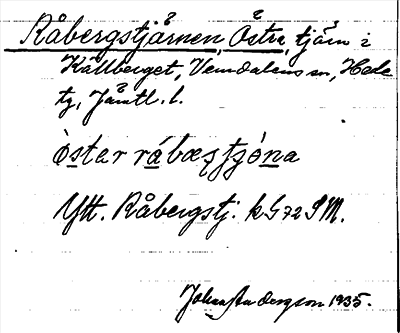 Råbergstjärnen, Östra, tjärn i
Källberget, Vemdalens sn, Hede
tg, Jämtl. l.
òstar rábæʂtjǫ́na
Ytt. Råbergstj. k G 72 S M.
Johan Andersson 1935.